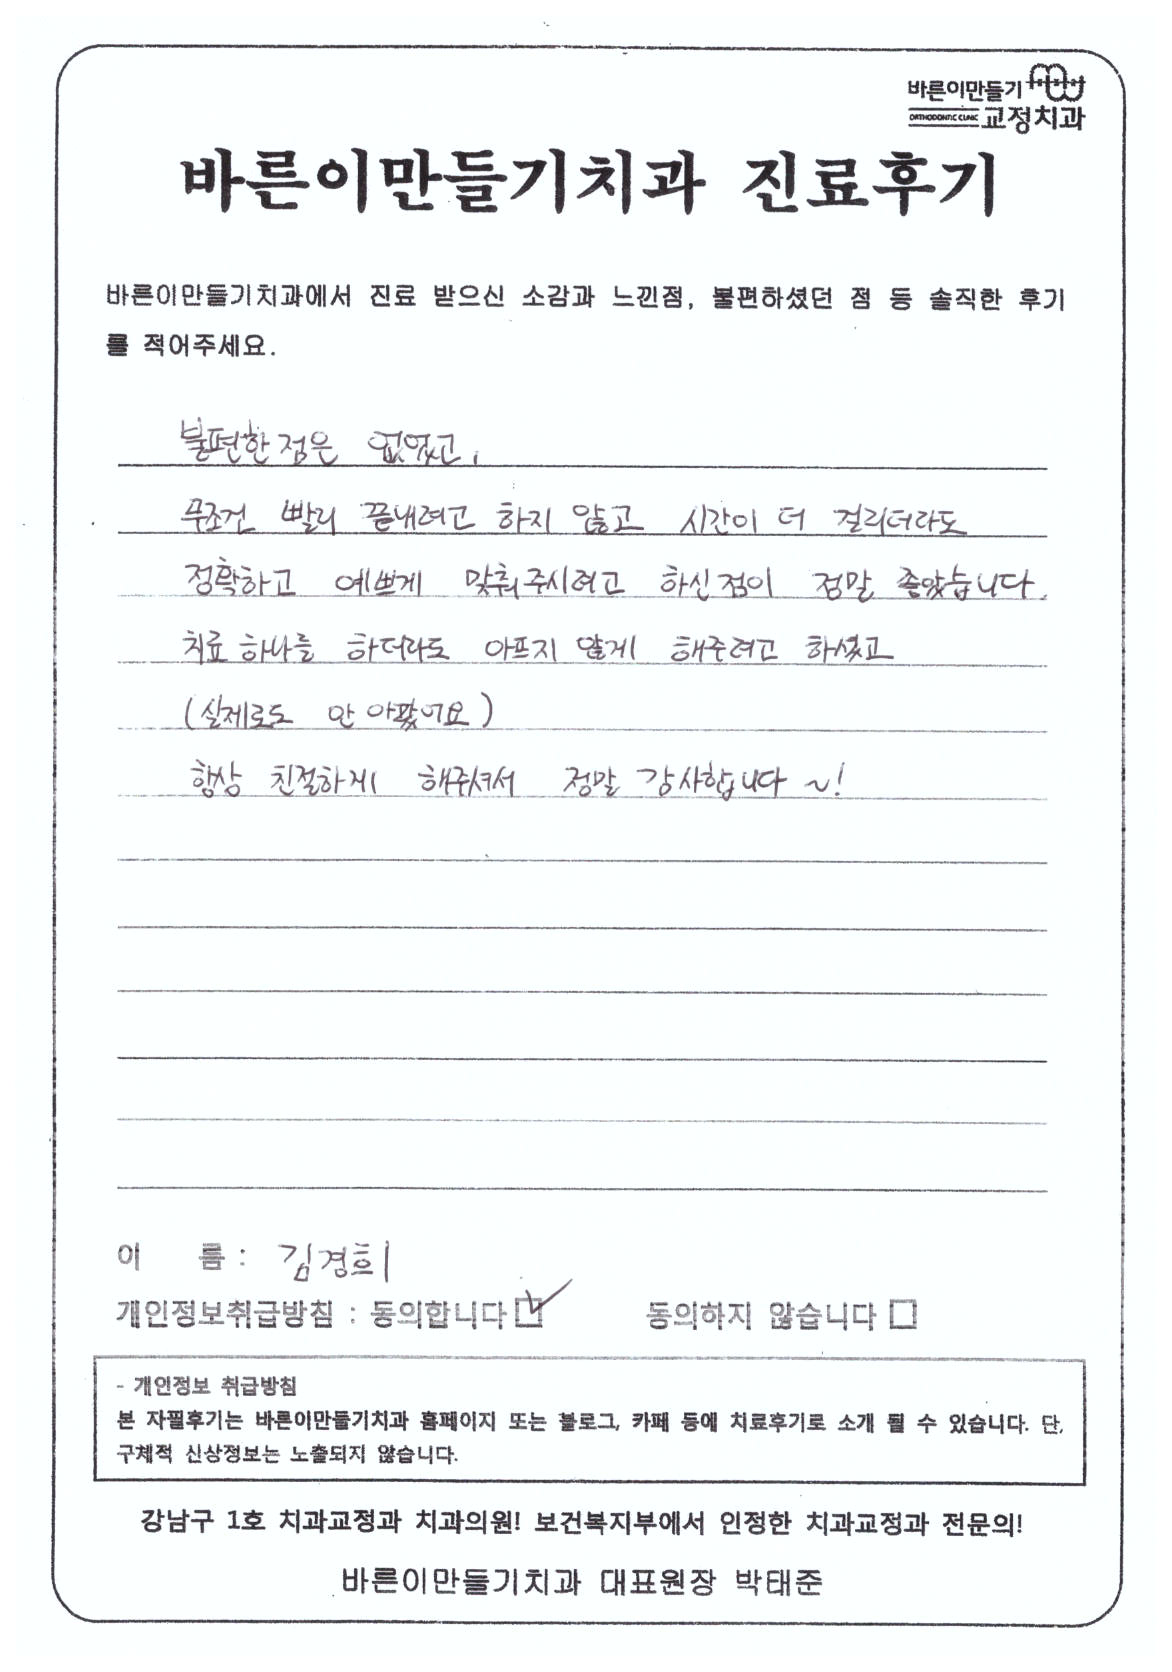 바른이만들기
ORTHODONTIC CLINIC 교정치과
바른이만들기치과 진료후기
바른이만들기치과에서 진료 받으신 소감과 느낀점, 불편하셨던 점 등 솔직한 후기
를 적어주세요.
불편한 점은 없었고,
무조건 빨리 끝내려고 하지 않고 시간이 더 걸리더라도
정확하고 예쁘게 맞춰주시려고 하신점이 정말 좋았습니다.
치료 하나를 하더라도 아프지 않게 해주려고 하셨고
(실제로도 안 아팠어요)
항상 친절하게 해주셔서 정말 감사합니다 ~!
이 름 : 김경희
개인정보취급방침 : 동의합니다 동의하지 않습니다
- 개인정보 취급방침
본 자필후기는 바른이만들기치과 홈페이지 또는 블로그, 카페 등에 치료후기로 소개 될 수 있습니다. 단,
구체적 신상정보는 노출되지 않습니다.
강남구 1호 치과교정과 치과의원! 보건복지부에서 인정한 치과교정과 전문의!
바른이만들기치과 대표원장 박태준